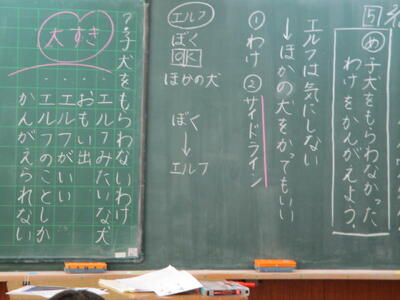 5
め 子犬をもらわなかった
わけをかんがえよう。
エルフは気にしない
↓ほかの犬をかってもいい
①わけ ②サイドライン
エルフ
ぼく
OK
ほかの犬
ぼく
↓
エルフ
子犬をもらわないわけ
・エルフみたいな犬
・おもい出
・エルフがいい
・エルフのことしか
かんがえられない
大すき